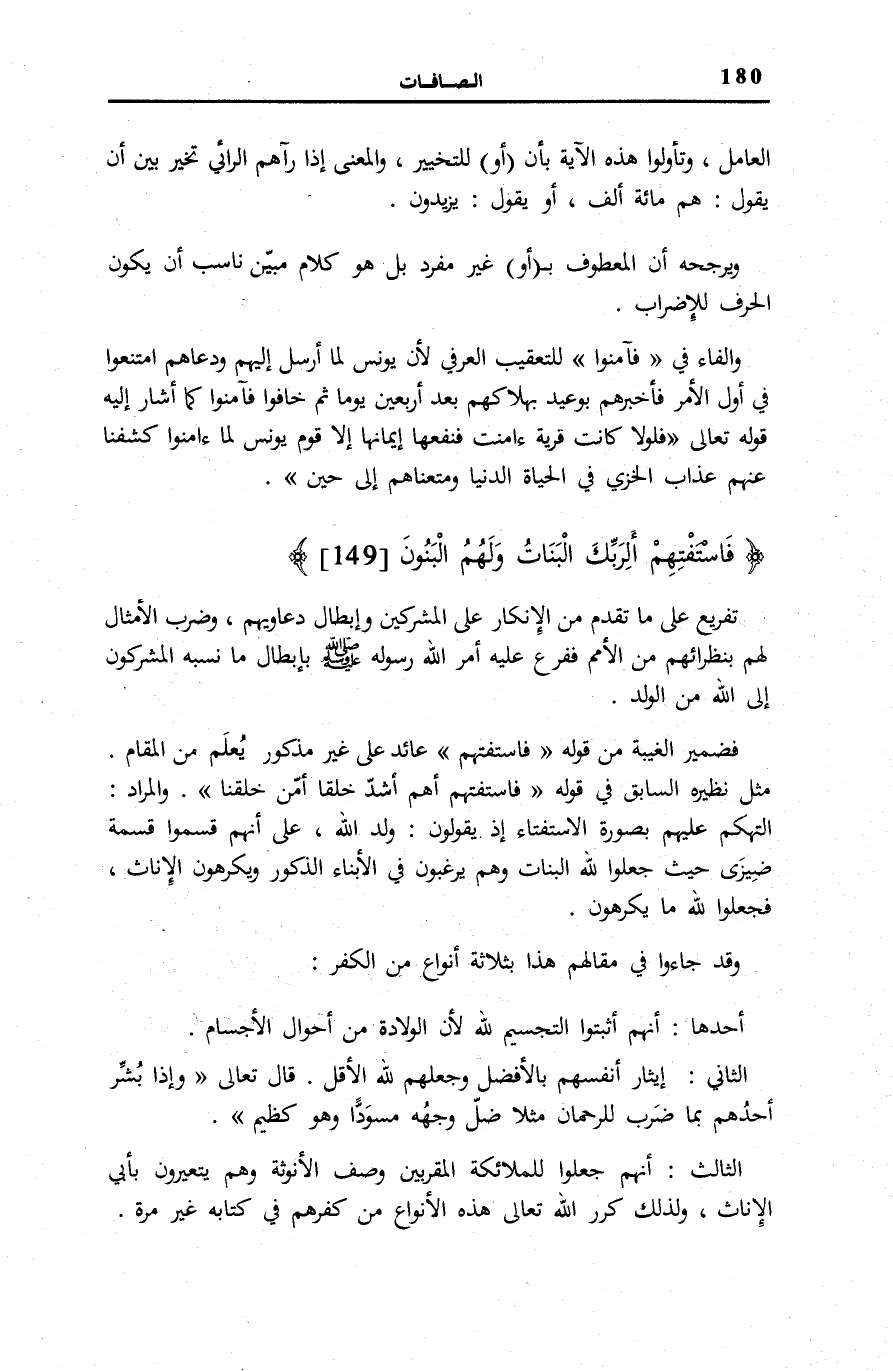 180
الصافات
العامل ، وتأولوا هذه الآية بأن (أو) للتخيير ، والمعنى إذا رآهم الرائي تخير بين أن
يقول : هم مائة ألف ، أو يقول : يزيدون .
ويرجحه أن المعطوف بـ(أو) غير مفرد بل هو كلام مبيّن ناسب أن يكون
الحرف للإضراب .
والفاء في « فآمنوا » للتعقيب العرفي لأن يونس لما أرسل إليهم ودعاهم امتنعوا
في أول الأمر فأخبرهم بوعيد بهلاكهم بعد أربعين يوما ثم خافوا فآمنوا كما أشار إليه
قوله تعالى «فلولا كانت قرية ءامنت فنفعها إيمانها إلا قوم يونس لما ءامنوا كشفنا
عنهم عذاب الخزي في الحياة الدنيا ومتعناهم إلى حين » .
﴿ فَاسْتَفْتِهِمْ أَلِرَبِّكَ الْبَنَاتُ وَلَهُمُ الْبَنُونَ [149] ﴾
تفريع على ما تقدم من الإنكار على المشركين وإبطال دعاويهم ، وضرب الأمثال
لهم بنظرائهم من الأمم ففرع عليه أمر الله رسوله ﷺ بإبطال ما نسبه المشركون
إلى الله من الولد .
فضمير الغيبة من قوله « فاستفتهم » عائد على غير مذكور يُعلَم من المقام .
مثل نظيره السابق في قوله « فاستفتهم أهم أشدّ خلقا أمّن خلقنا » . والمراد :
التهكم عليهم بصورة الاستفتاء إذ يقولون : ولد الله ، على أنهم قسموا قسمة
ضِيزَى حيث جعلوا لله البنات وهم يرغبون في الأبناء الذكور ويكرهون الإناث ،
فجعلوا لله ما يكرهون .
وقد جاءوا في مقالهم هذا بثلاثة أنواع من الكفر :
أحدها : أنهم أثبتوا التجسيم لله لأن الولادة من أحوال الأجسام .
الثاني : إيثار أنفسهم بالأفضل وجعلهم لله الأقل . قال تعالى « وإذا بُشِّر
أحدُهم بما ضَرب للرحمان مثلا ضلّ وجهُه مسوَدًّا وهو كظيم » .
الثالث : أنهم جعلوا للملائكة المقربين وصف الأنوثة وهم يتعيرون بأبي
الإناث ، ولذلك كرر الله تعالى هذه الأنواع من كفرهم في كتابه غير مرة .